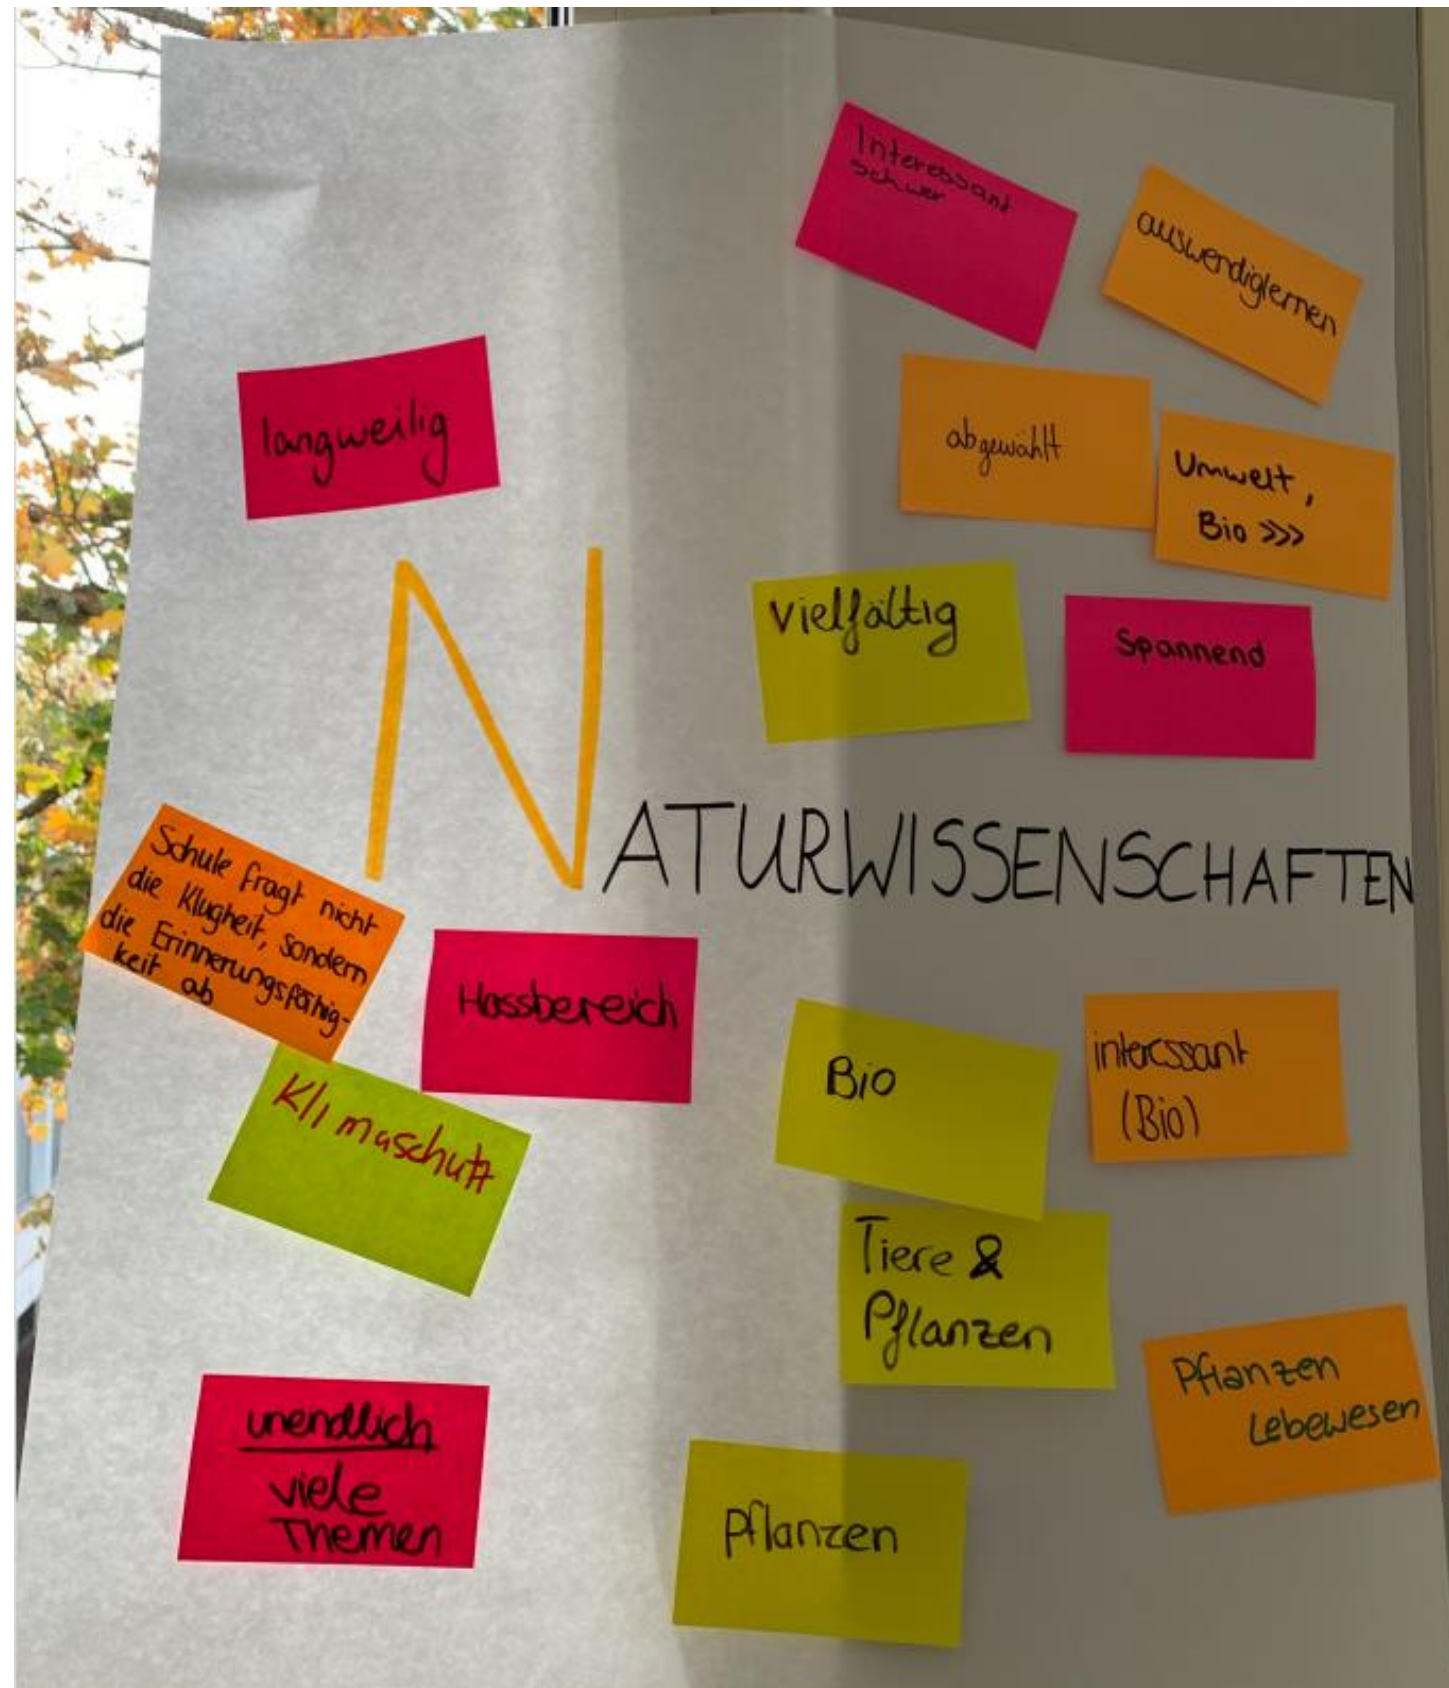 Interessant
schwer
auswendiglernen
langweilig
abgewählt
Umwelt,
Bio >>>
vielfältig
Spannend
NATURWISSENSCHAFTEN
Schule fragt nicht
die Klugheit, sondern
die Erinnerungsfähig-
keit ab
Hassbereich
Bio
interessant
(Bio)
Klimaschutz
Tiere &
Pflanzen
Pflanzen
Lebewesen
unendlich
viele
Themen
Pflanzen